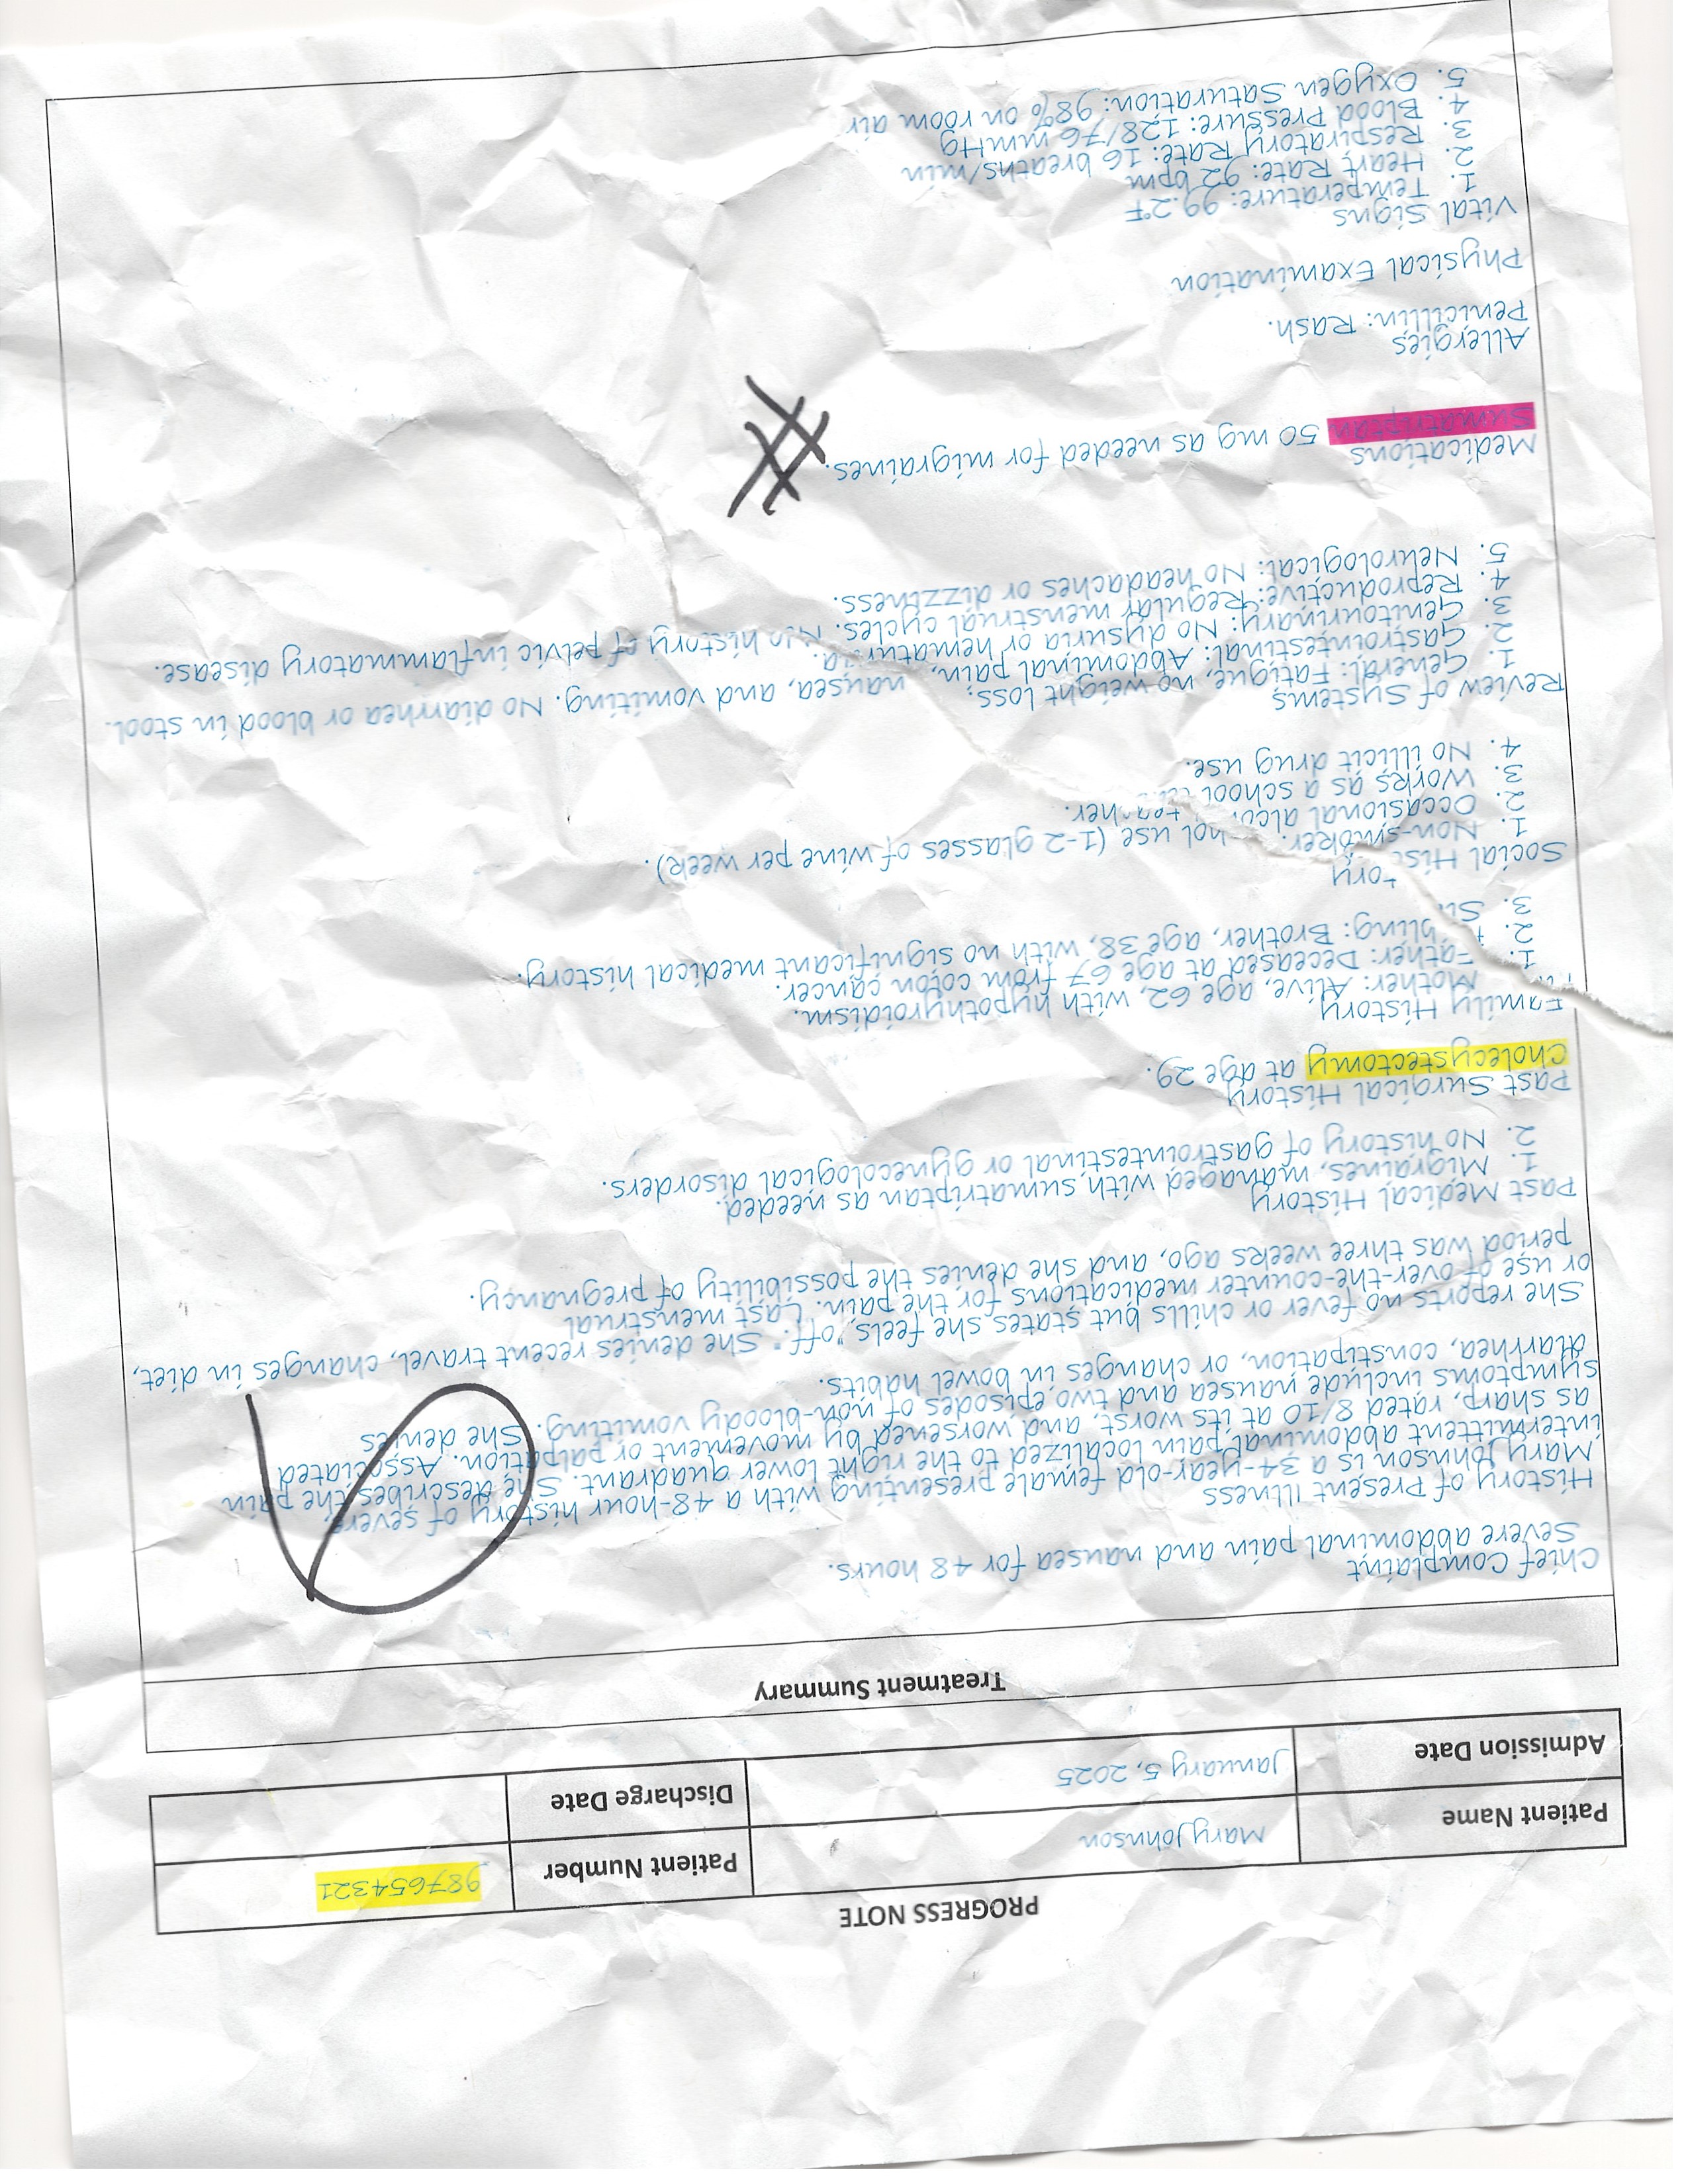 PROGRESS NOTE
Patient Name Mary Johnson Patient Number 987654321
Admission Date January 5, 2025 Discharge Date
Treatment Summary
Chief Complaint
Severe abdominal pain and nausea for 48 hours.
History of Present Illness
Mary Johnson is a 34-year-old female presenting with a 48-hour history of severe
intermittent abdominal pain localized to the right lower quadrant. She describes the pain
as sharp, rated 8/10 at its worst, and worsened by movement or palpation. Associated
symptoms include nausea and two episodes of non-bloody vomiting. She denies
diarrhea, constipation, or changes in bowel habits.
She reports no fever or chills but states she feels "off." She denies recent travel, changes in diet,
or use of over-the-counter medications for the pain. Last menstrual
period was three weeks ago, and she denies the possibility of pregnancy.
Past Medical History
1. Migraines, managed with sumatriptan as needed.
2. No history of gastrointestinal or gynecological disorders.
Past Surgical History
Cholecystectomy at age 29.
Family History
1. Mother: Alive, age 62, with hypothyroidism.
2. Father: Deceased at age 67 from colon cancer.
3. Sibling: Brother, age 38, with no significant medical history.
Social History
1. Non-smoker.
2. Occasional alcohol use (1-2 glasses of wine per week).
3. Works as a school teacher.
4. No illicit drug use.
Review of Systems
1. General: Fatigue, no weight loss.
2. Gastrointestinal: Abdominal pain, nausea, and vomiting. No diarrhea or blood in stool.
3. Genitourinary: No dysuria or hematuria.
4. Reproductive: Regular menstrual cycles. No history of pelvic inflammatory disease.
5. Neurological: No headaches or dizziness.
Medications
Sumatriptan 50 mg as needed for migraines.
Allergies
Penicillin: Rash.
Physical Examination
Vital Signs
1. Temperature: 99.2°F
2. Heart Rate: 92 bpm
3. Respiratory Rate: 16 breaths/min
4. Blood Pressure: 128/76 mmHg
5. Oxygen Saturation: 98% on room air